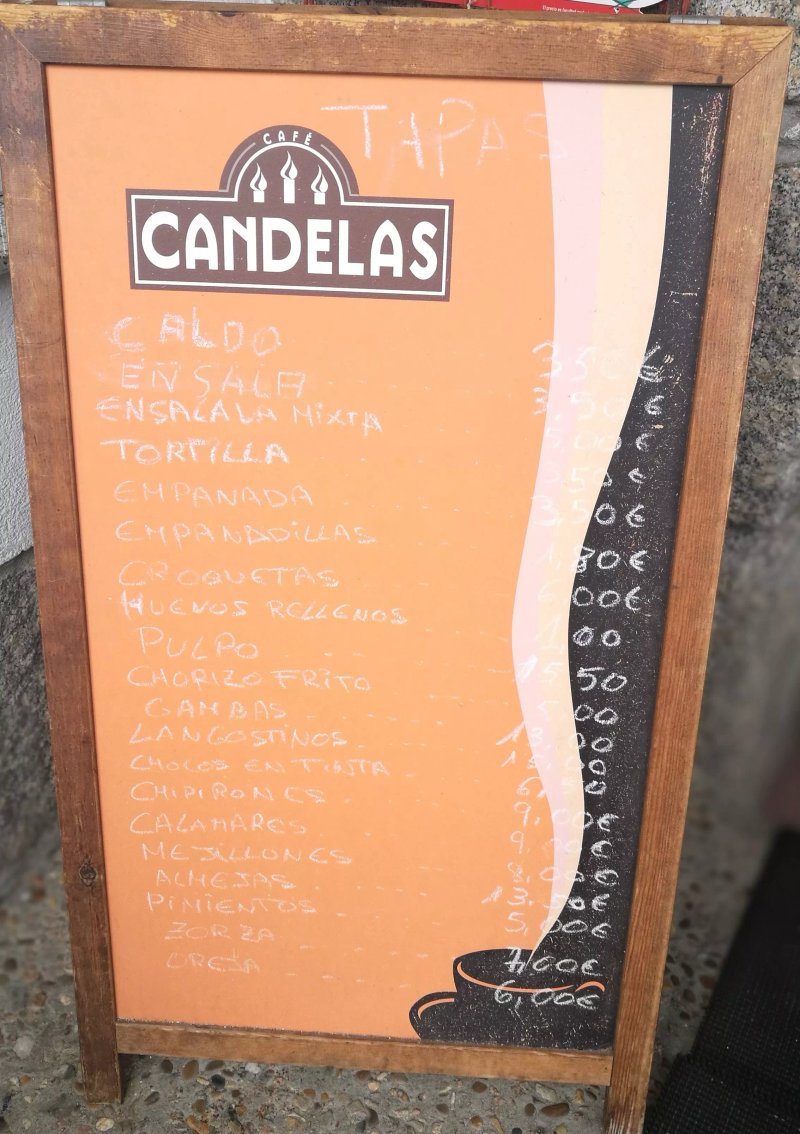 TAPAS
CAFÉ
CANDELAS
CALDO 3,50€
ENSALA 3,50€
ENSALALA MIXTA 5,00€
TORTILLA 3,50€
EMPANADA 3,50€
EMPANADILLAS 1,80€
CROQUETAS 6,00€
HUEVOS RELLENOS 00
PULPO 15,50
CHORIZO FRITO 5,00
GAMBAS 13,00
LANGOSTINOS 00
CHOCOS EN TINTA 6,50
CHIPIRONES 9,00€
CALAMARES 9,00€
MEJILLONES 8,00€
ALMEJAS 13,50€
PIMIENTOS 5,00€
ZORZA 7,00€
OREJA 6,00€